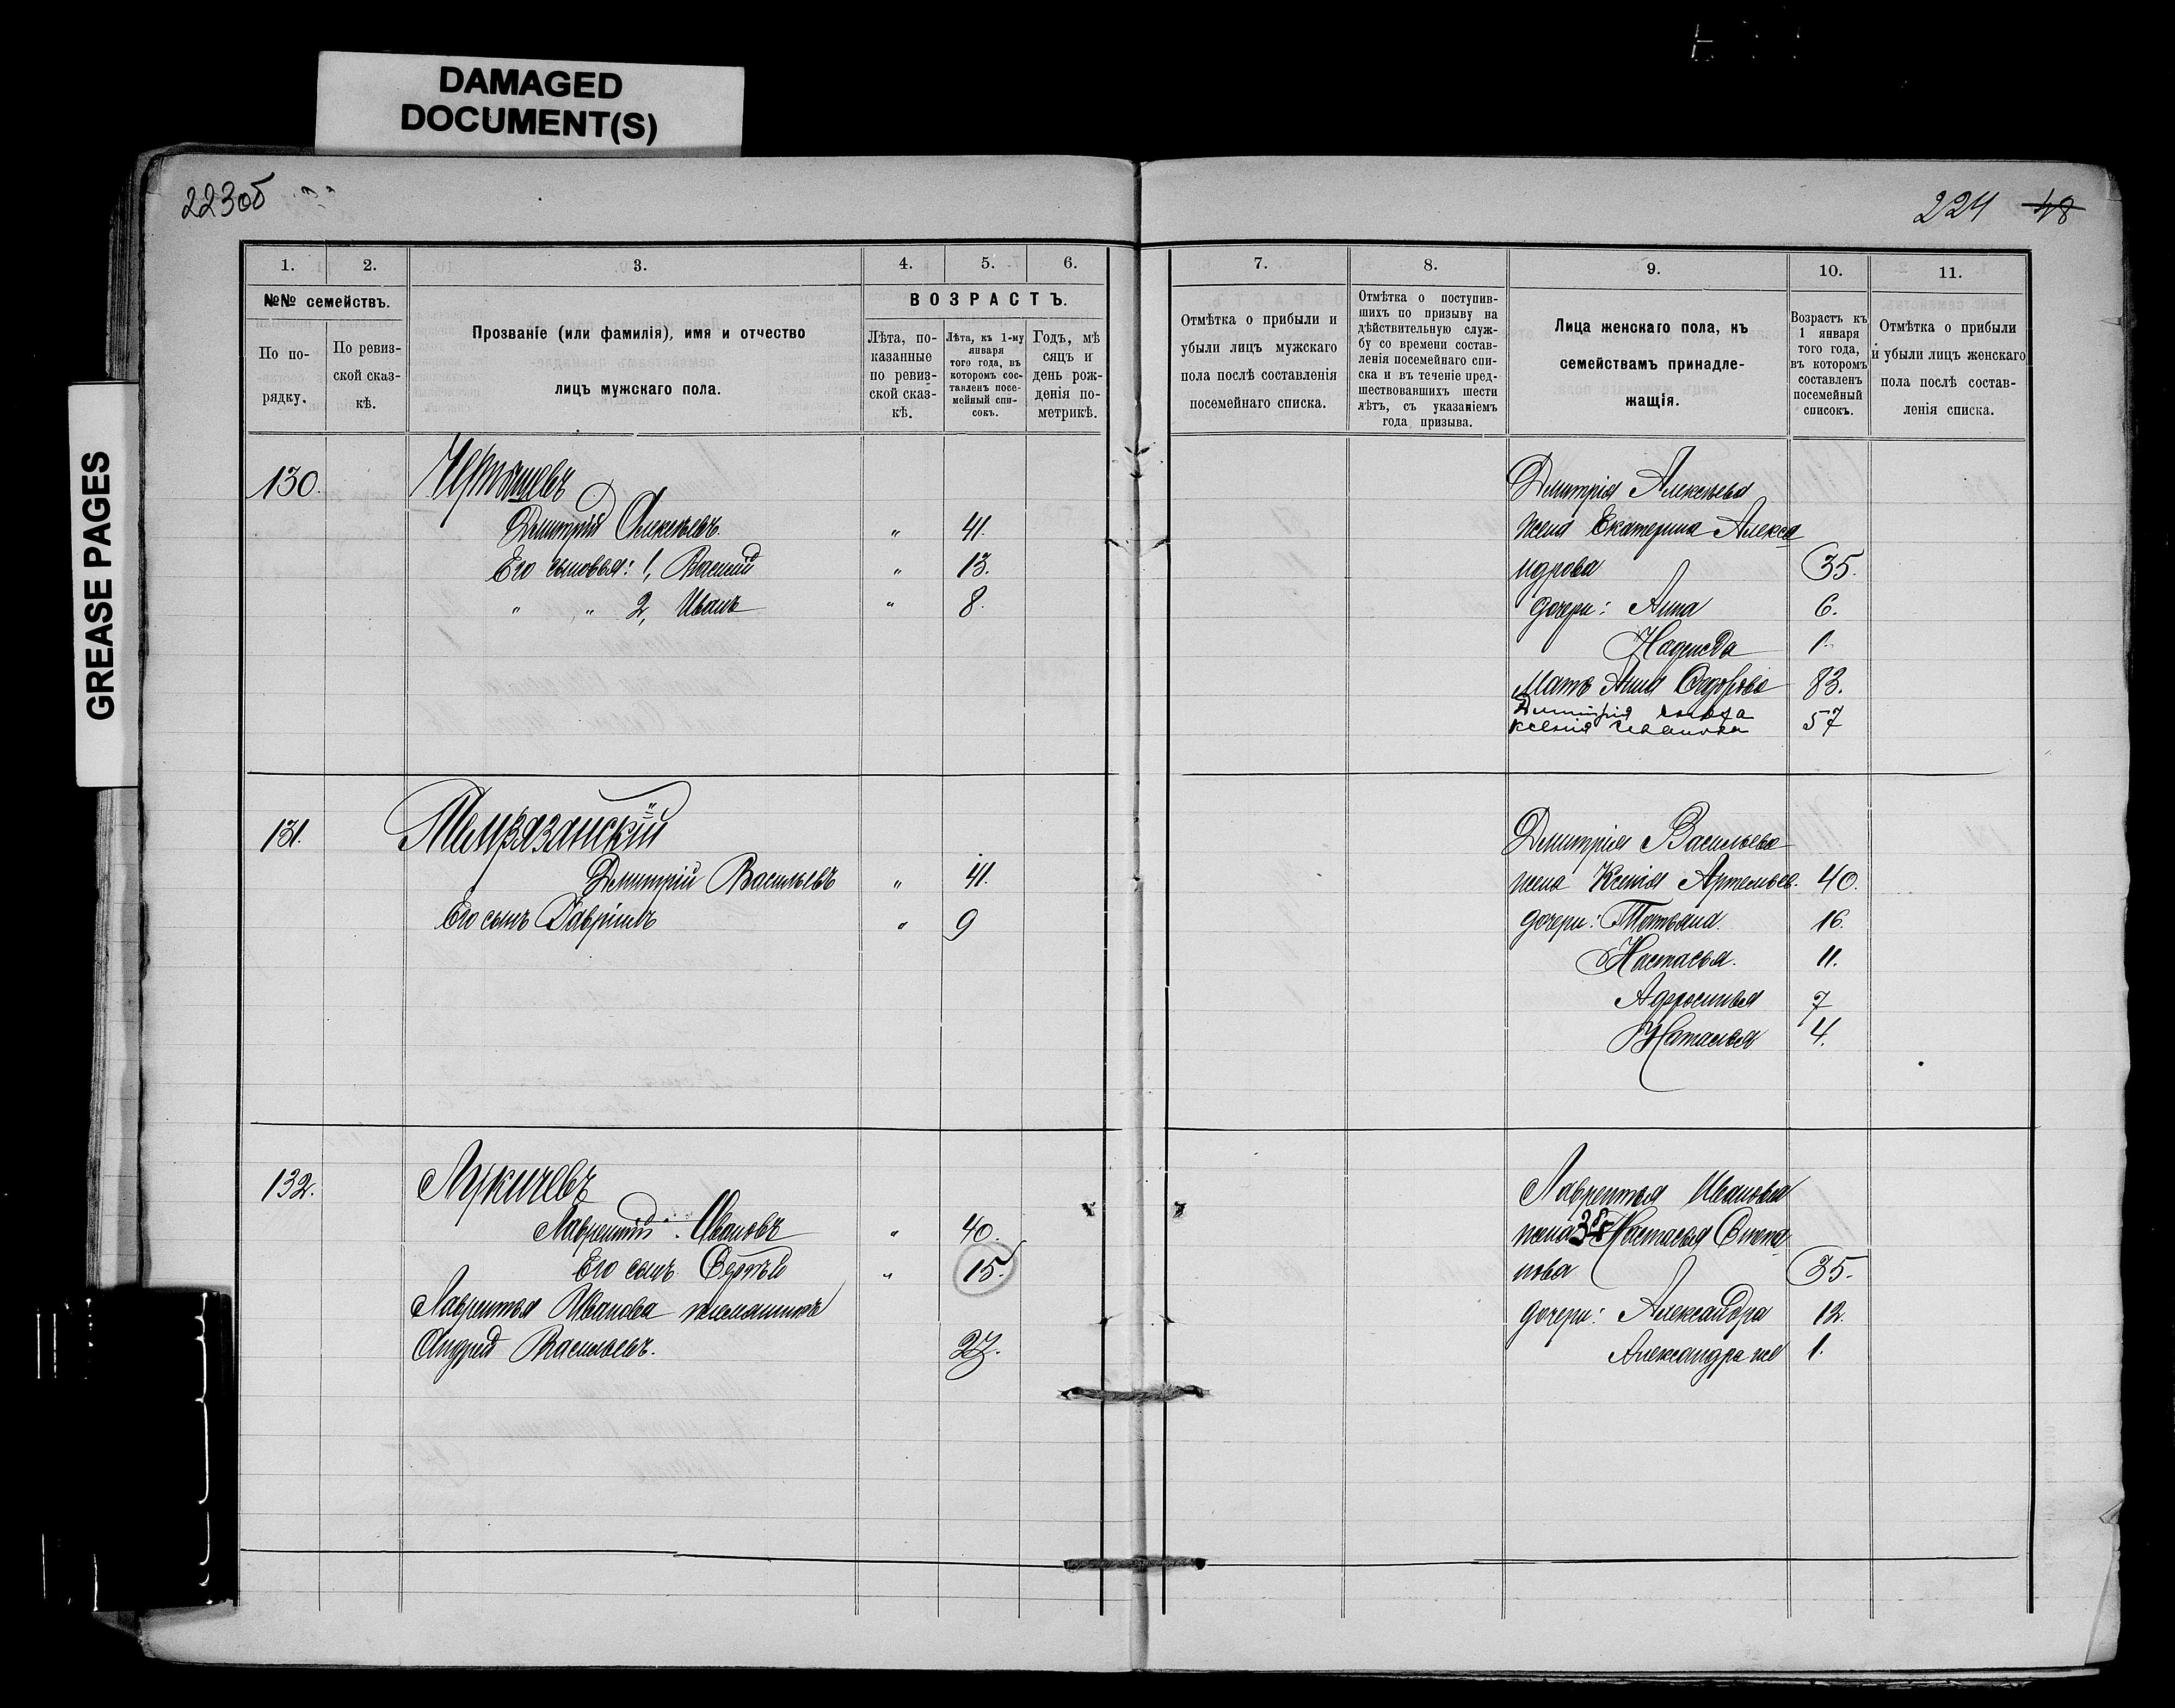 DAMAGED
DOCUMENT(S)
GREASE PAGES
223об
224 48
1. 2. 3. 4. 5. 6.
№№ семействъ.
По по-
рядку.
По ревиз-
ской сказ-
кѣ.
Прозваніе (или фамилія), имя и отчество
лицъ мужскаго пола.
ВОЗРАСТЪ.
Лѣта, по-
казанные
по ревиз-
ской сказ-
кѣ.
Лѣта, къ 1-му
января
того года, въ
которомъ сос-
тавленъ посе-
мейный спи-
сокъ.
Годъ, мѣ
сяцъ и
день рож-
денія по-
метрикѣ.
130.
Дмитрій Алексѣевъ. " 41.
Его сыновья: 1, Василій " 13.
" " 2, Иванъ " 8.
131.
Темрязанскій
Дмитрій Васильевъ " 41.
Его сынъ Гавріилъ " 9
132.
Лукичевъ
Лаврентій Ивановъ " 40.
Его сынъ Сергѣй " 15.
Лаврентья Иванова племянникъ
Андрей Васильевъ. 27.
7. 8. 9. 10. 11.
Отмѣтка о прибыли и
убыли лицъ мужскаго
пола послѣ составленія
посемейнаго списка.
Отмѣтка о поступив-
шихъ по призыву на
дѣйствительную служ-
бу со времени состав-
ленія посемейнаго спи-
ска и въ теченіе пред-
шествовавшихъ шести
лѣтъ, съ указаніемъ
года призыва.
Лица женскаго пола, къ
семействамъ принадле-
жащія.
Возрастъ къ
1 января
того года,
въ которомъ
составленъ
посемейный
списокъ.
Отмѣтка о прибыли
и убыли лицъ женскаго
пола послѣ состав-
ленія списка.
Дмитрія Алексѣева
жена Екатерина Алекса
ндрова 35.
дочери: Анна 6.
Надежда 1.
Мать Анна Сидорова 83.
Дмитрія
Ксенія Иванова 57
Дмитрія Васильева
жена Ксенія Артемьев. 40.
дочери: Татьяна. 16.
Настасья. 11.
Афросинья 7
Наталья 4.
Лаврентья Иванова
жена Настасья Степа
нова 35.
дочери: Александра 12.
Александра же 1.